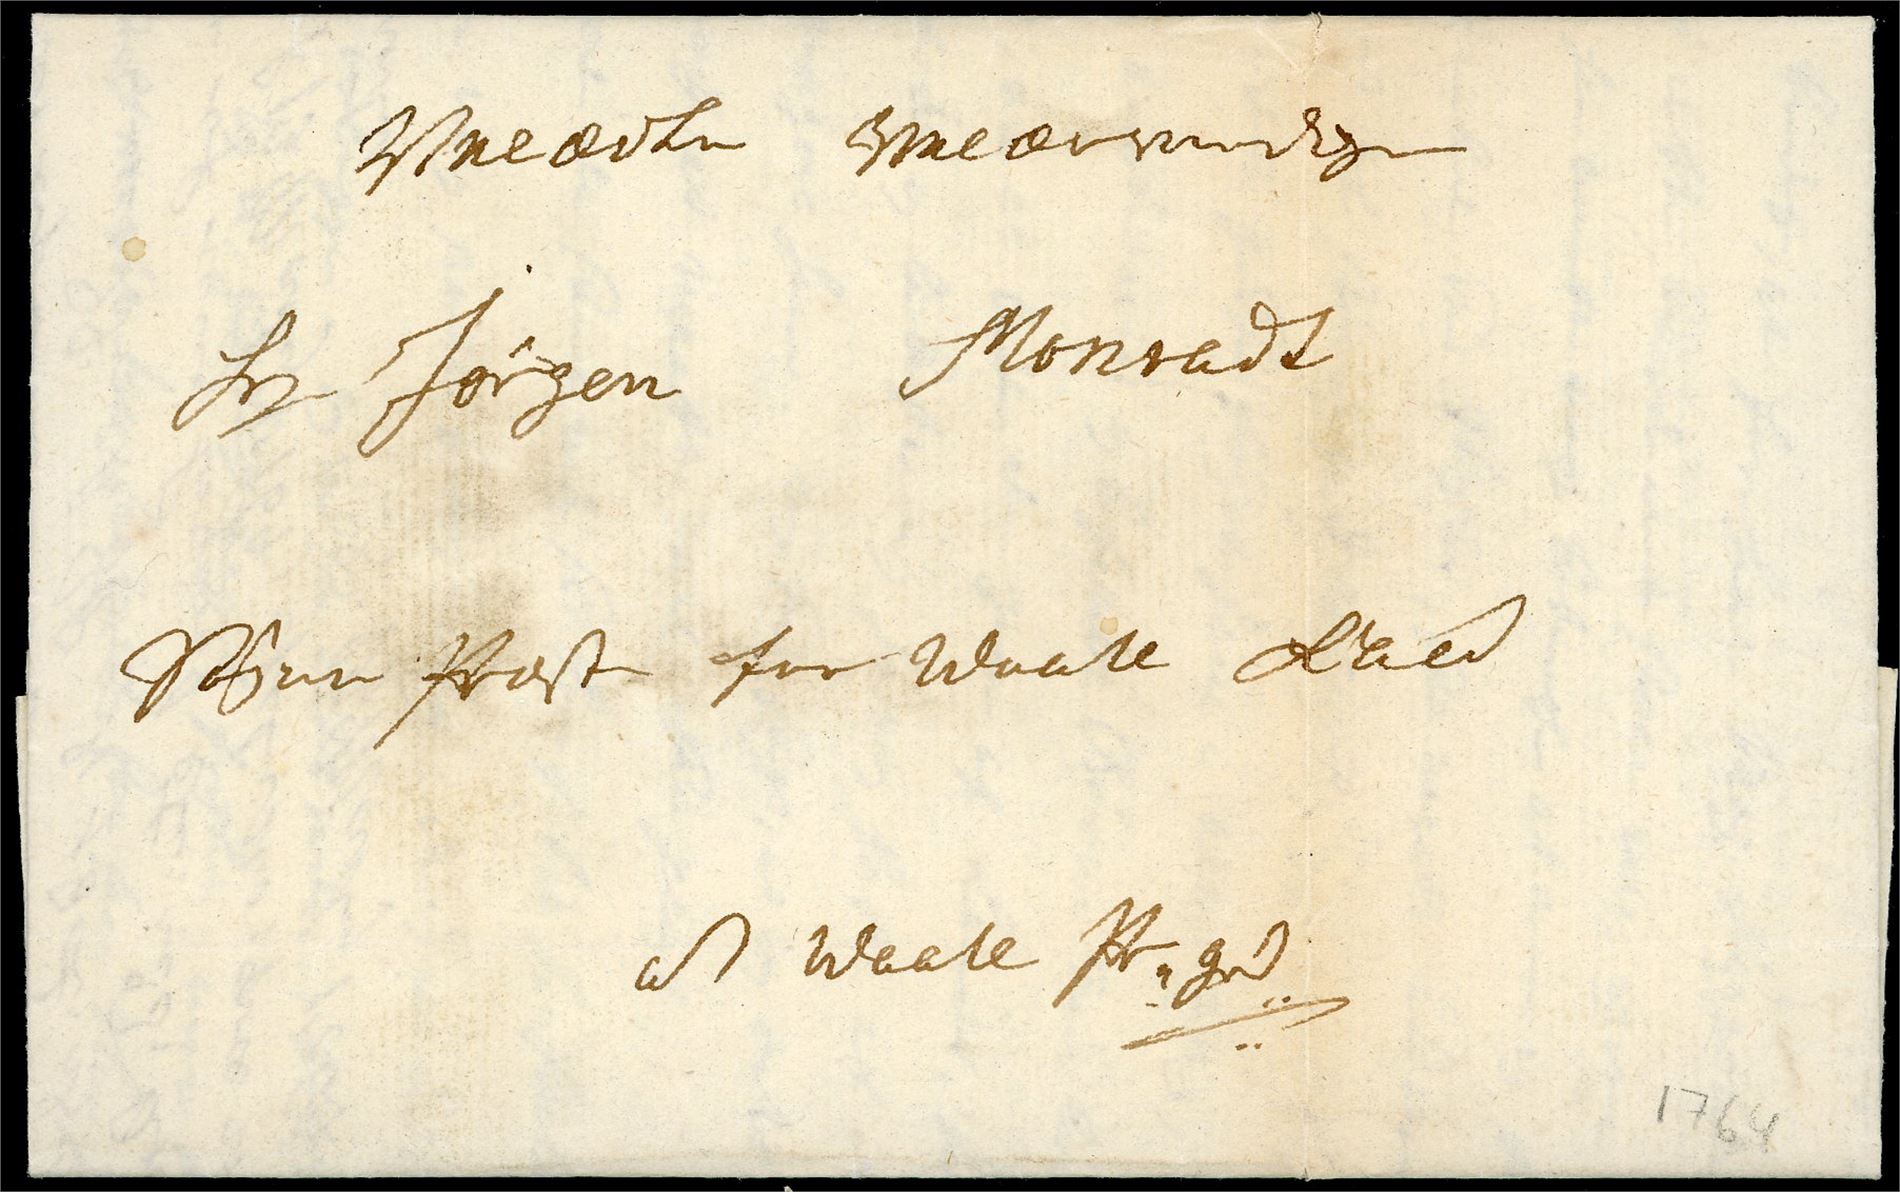 Velædle Velærverdige
Hr Jörgen Monradt
Sogne Præst for Waale Kald
a Waale Pr: grd
1764